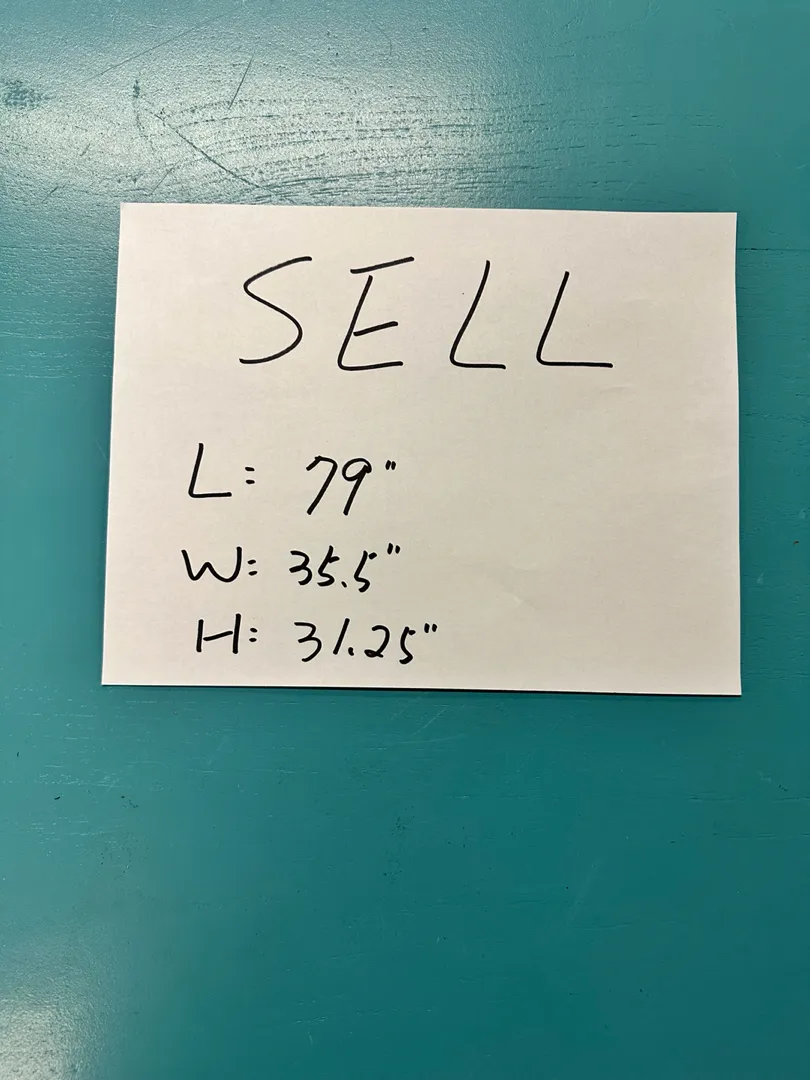 SELL
L: 79"
W: 35.5"
H: 31.25"